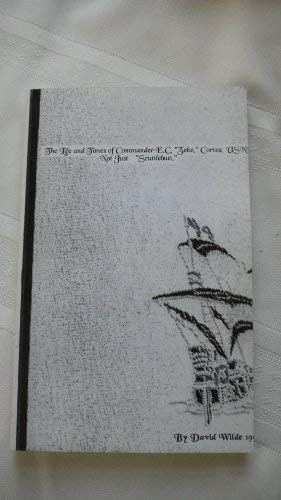 The Life and Times of Commander E.C. "Zeke," Cortez, USN
Not Just "Scuttlebut,"
By David Wilde 19